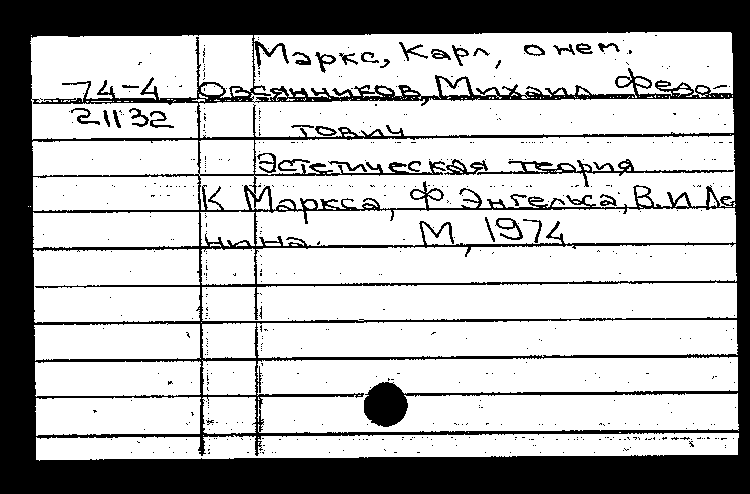 Маркс, Карл, о нем.
74-4 Овсянников, Михаил Федо-
21132 тович
Эстетическая теория
К Маркса, Ф. Энгельса, В. И Ле
нина. М, 1974